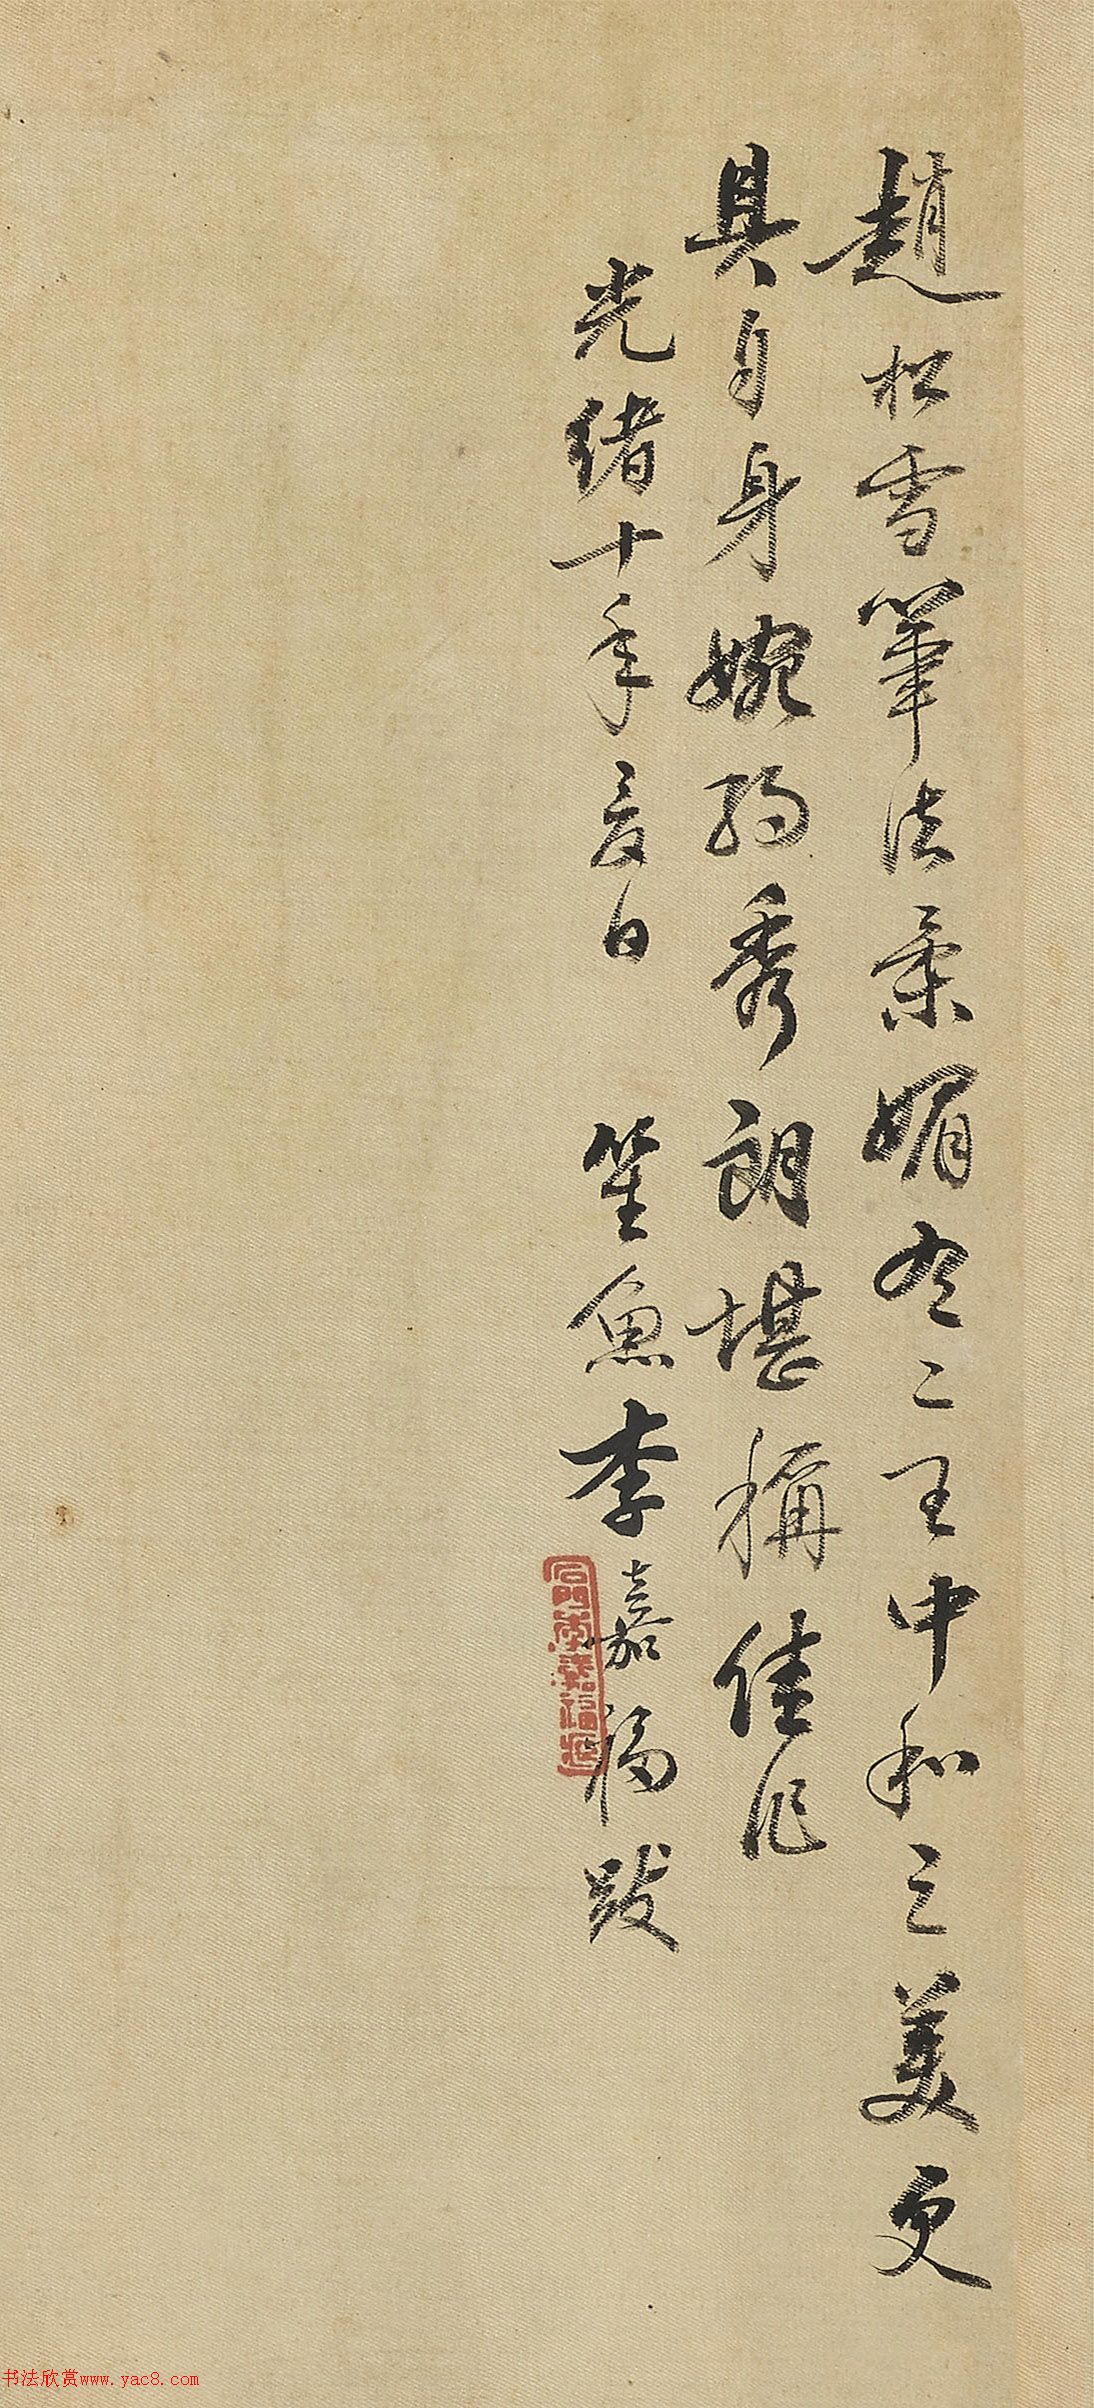 趙松雪筆法柔媚有二王中和之美更
具自身婉約秀朗堪稱佳作
光緒十年夏日 笙魚李嘉福跋
書法欣賞www.yac8.com